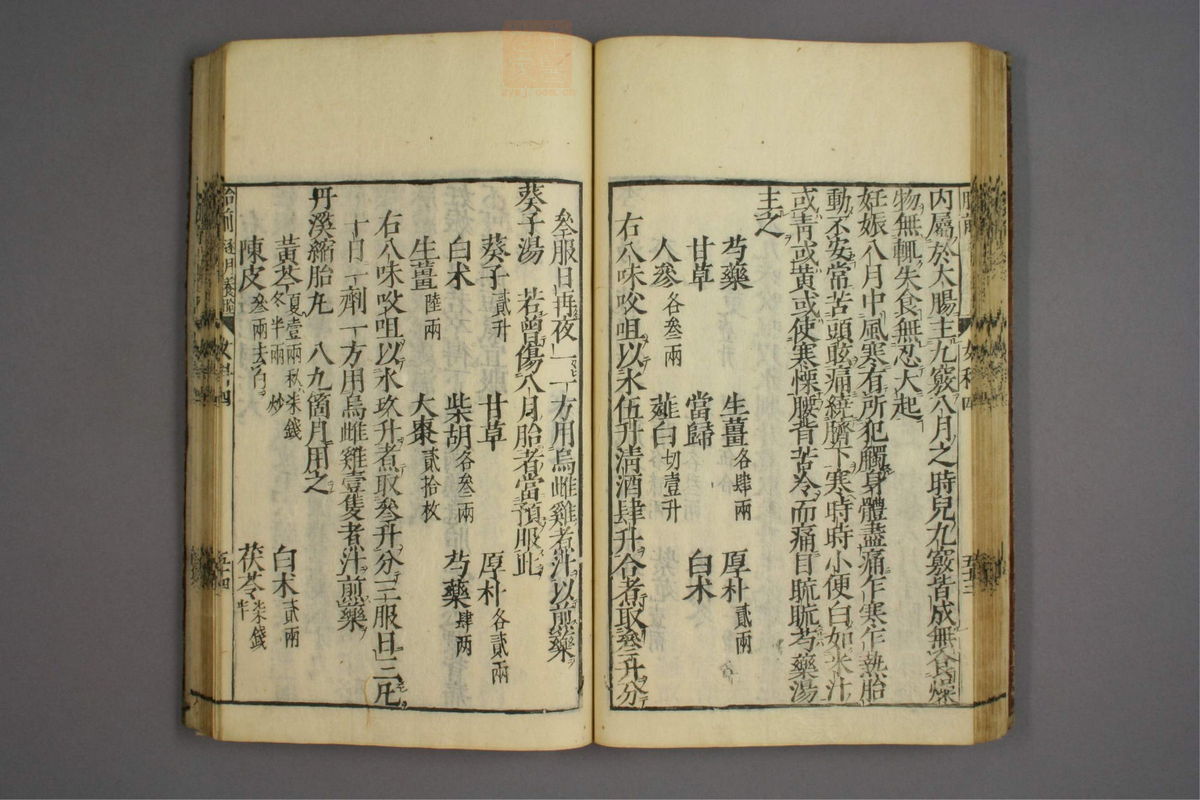 內屬於太腸主九竅八月之時兒九竅皆成無食燥
物無輒失食無忍大起
妊娠八月中風寒有所犯觸身體盡痛乍寒乍熱胎
動不安常苦頭眩痛繞臍下寒時時小便白如米汁
或青或黃或使寒慄腰背苦冷而痛目䀮䀮芍藥湯
主之
芍藥 生薑各肆兩 厚朴貳兩
甘草 當歸 白朮
人參各叄兩 薤白切壹升
右八味㕮咀以水伍升清酒肆升合煮取叄升分
叄服日再夜一一方用烏雌雞煮汁以煎藥
葵子湯 若曾傷八月胎者當預服此
葵子貳升 甘草 厚朴各貳兩
白朮 柴胡各叄兩 芍藥肆两
生薑陸兩 大棗貳拾枚
右八味㕮咀以水玖升煮取叄升分三服日三凡
十日一劑一方用烏雌雞壹隻煮汁煎藥
丹溪縮胎丸 八九箇月用之
黃芩夏壹兩秋柒錢冬半兩炒 白朮貳兩
陳皮叄兩去白 茯苓柒錢半